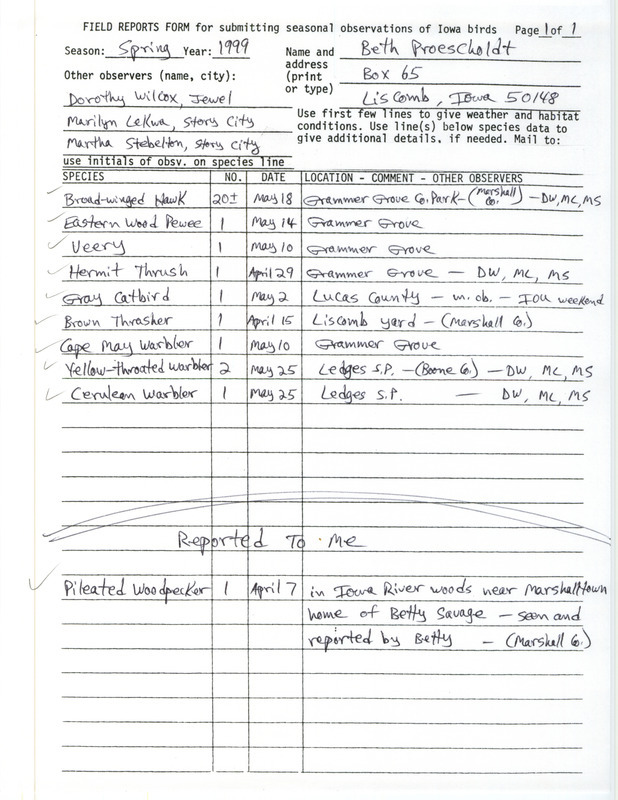 FIELD REPORTS FORM for submitting seasonal observations of Iowa birds Page 1 of 1
Season: Spring Year: 1999
Name and address (print or type)
Beth Proescholdt
Box 65
Liscomb, Iowa 50148
Other observers (name, city):
Dorothy Wilcox, Jewel
Marilyn LeKwa, Story City
Martha Stebelton, Story City
use initials of obsv. on species line
Use first few lines to give weather and habitat
conditions. Use line(s) below species data to
give additional details, if needed. Mail to:
SPECIES NO. DATE LOCATION - COMMENT - OTHER OBSERVERS
Broad-winged Hawk 20± May 18 Grammer Grove Co. Park - (Marshall Co.) - DW, MC, MS
Eastern Wood Pewee 1 May 14 Grammer Grove
Veery 1 May 10 Grammer Grove
Hermit Thrush 1 April 29 Grammer Grove - DW, ML, MS
Gray Catbird 1 May 2 Lucas County - m. ob. - IOU weekend
Brown Thrasher 1 April 15 Liscomb yard - (Marshall Co.)
Cape May Warbler 1 May 10 Grammer Grove
Yellow-throated Warbler 2 May 25 Ledges S.P. - (Boone Co.) - DW, ML, MS
Cerulean Warbler 1 May 25 Ledges S.P. - DW, ML, MS
Reported To Me
Pileated Woodpecker 1 April 7 in Iowa River woods near Marshalltown
home of Betty Savage - seen and
reported by Betty - (Marshall Co.)